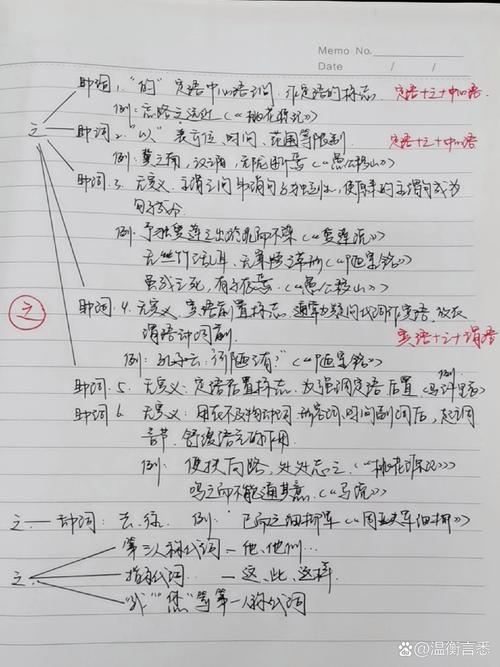 Memo No.
Date / /
助词 1. "的" 定语中心语之间, 作定语的标志. 定语+之+中心语.
例: 忘路之远近 (《桃花源记》)
之 助词 2. "以" 表方位、时间、范围等限制 定语+之+中心语
例: 冀之南, 汉之阴, 无陇断焉 (《愚公移山》)
助词 3. 无意义. 主谓之间取消句子独立性, 使原来的主谓句成为
句子成分
例: 予独爱莲之出淤泥而不染 (《爱莲说》)
无丝竹之乱耳, 无案牍之劳形 (《陋室铭》)
虽我之死, 有子存焉. (《愚公移山》)
之
助词 4. 无意义. 宾语前置标志, 通常为疑问代词作宾语, 放在
谓语动词前 宾语+之+谓语
例: 孔子云: 何陋之有?" (《陋室铭》)
助词 5. 无意义: 定语后置标志, 为强调定语后置
助词 6. 无意义: 用在不及物动词、形容词、时间副词后, 起调
音节、舒缓语气的作用.
例: 便扶向路, 处处志之. (《桃花源记》)
鸣之而不能通其意. (《马说》)
之 — 动词: 去、往. 例:
第三人称代词 — 他、他们…
之 指示代词 — 这、此、这样.
"我" "您" 等第一人称代词
@温衡言悉